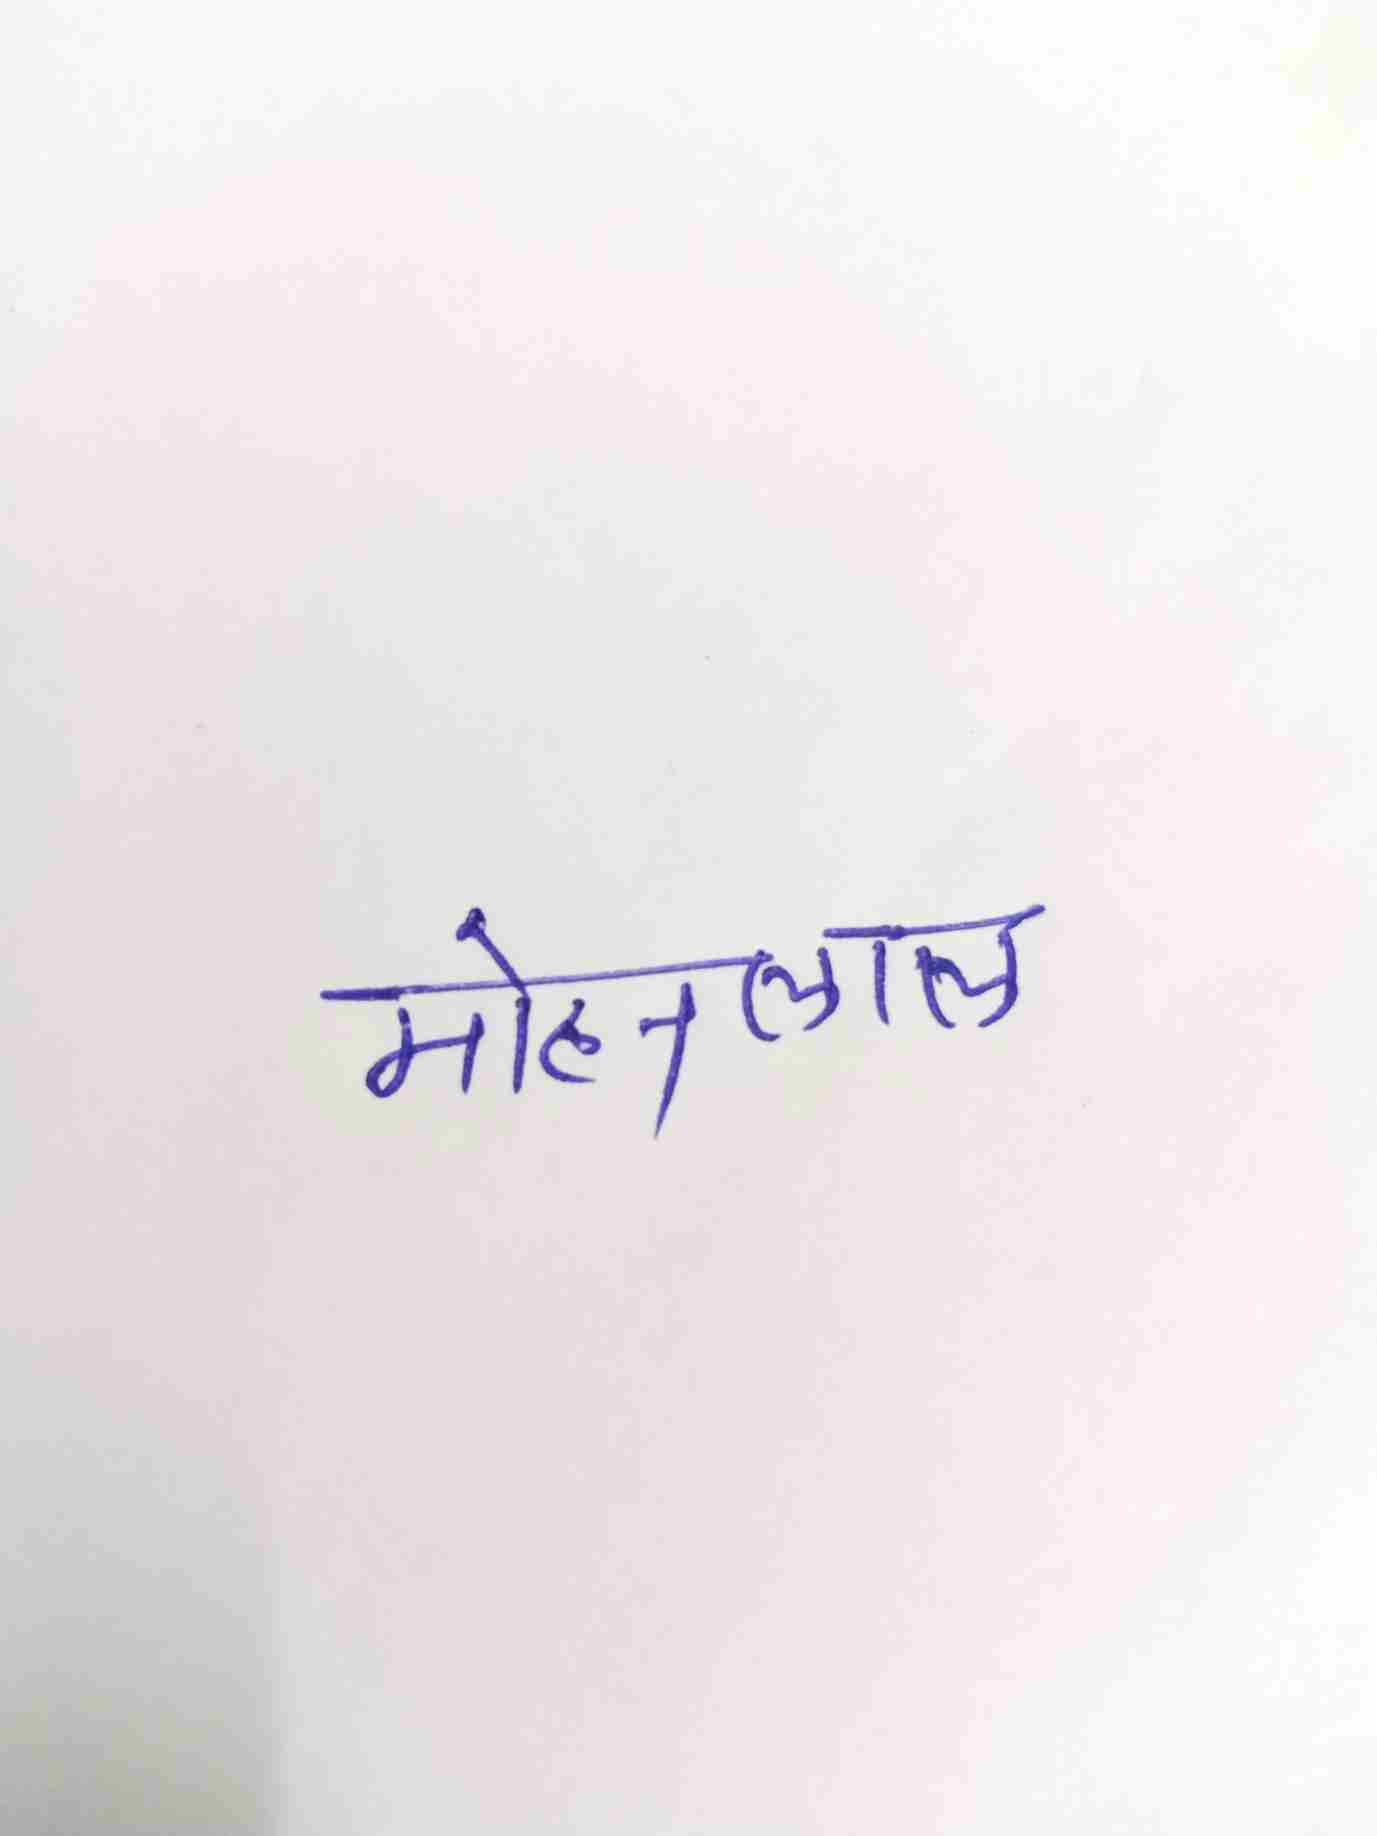 मोहनलाल